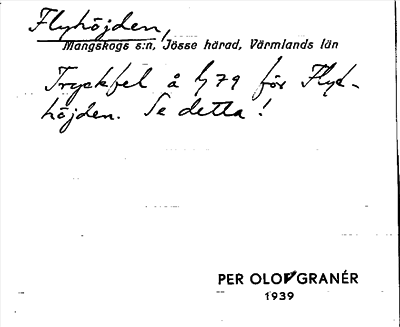 Flyhöjden,
Mangskogs s:n, Jösse härad, Värmlands län
Tryckfel å bj 79 för Flyt-
höjden. Se detta!
PER OLOF GRANÉR
1939